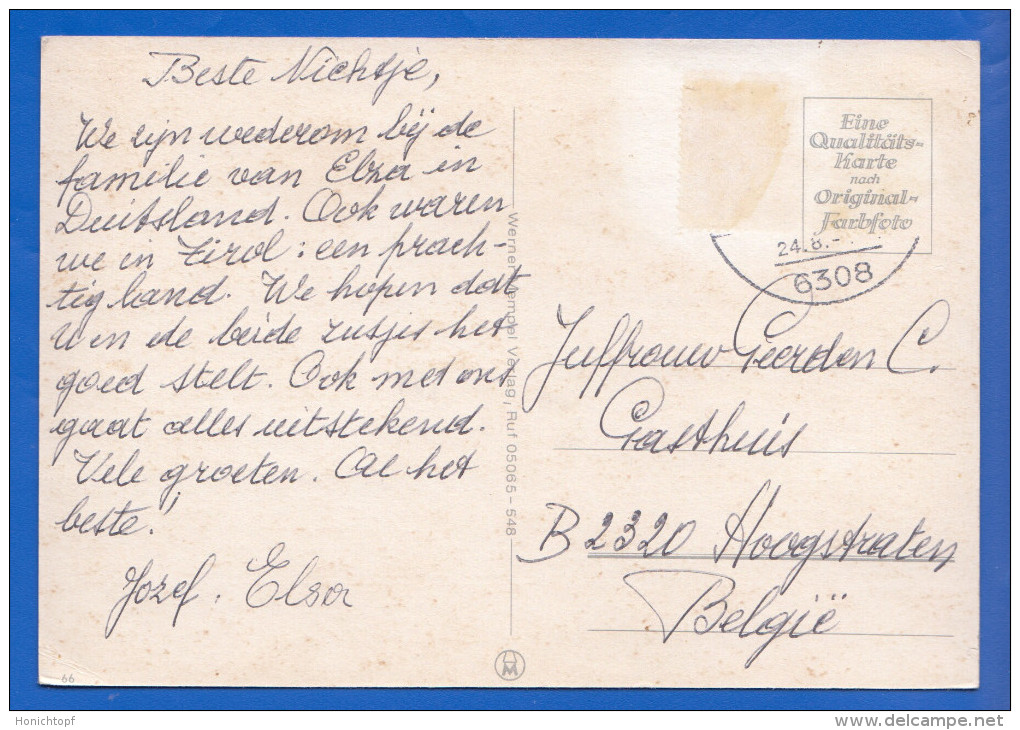 Beste Nichtje,
We zijn wederom bij de
familie van Elza in
Duitsland. Ook waren
we in Tirol: een prach-
tig land. We hopen dat
U en de beide zusjes het
goed stelt. Ook met ons
gaat alles uitstekend.
Vele groeten. Al het
beste!
Jozef. Elsa
66
Werner Hempel Verlag, Ruf 05065-548
Eine
Qualitäts-
Karte
nach
Original-
Farbfoto
24.8.-
6308
Juffrouw Geerden C.
Gasthuis
B 2320 Hoogstraten
België
Honichtopf
www.delcampe.net